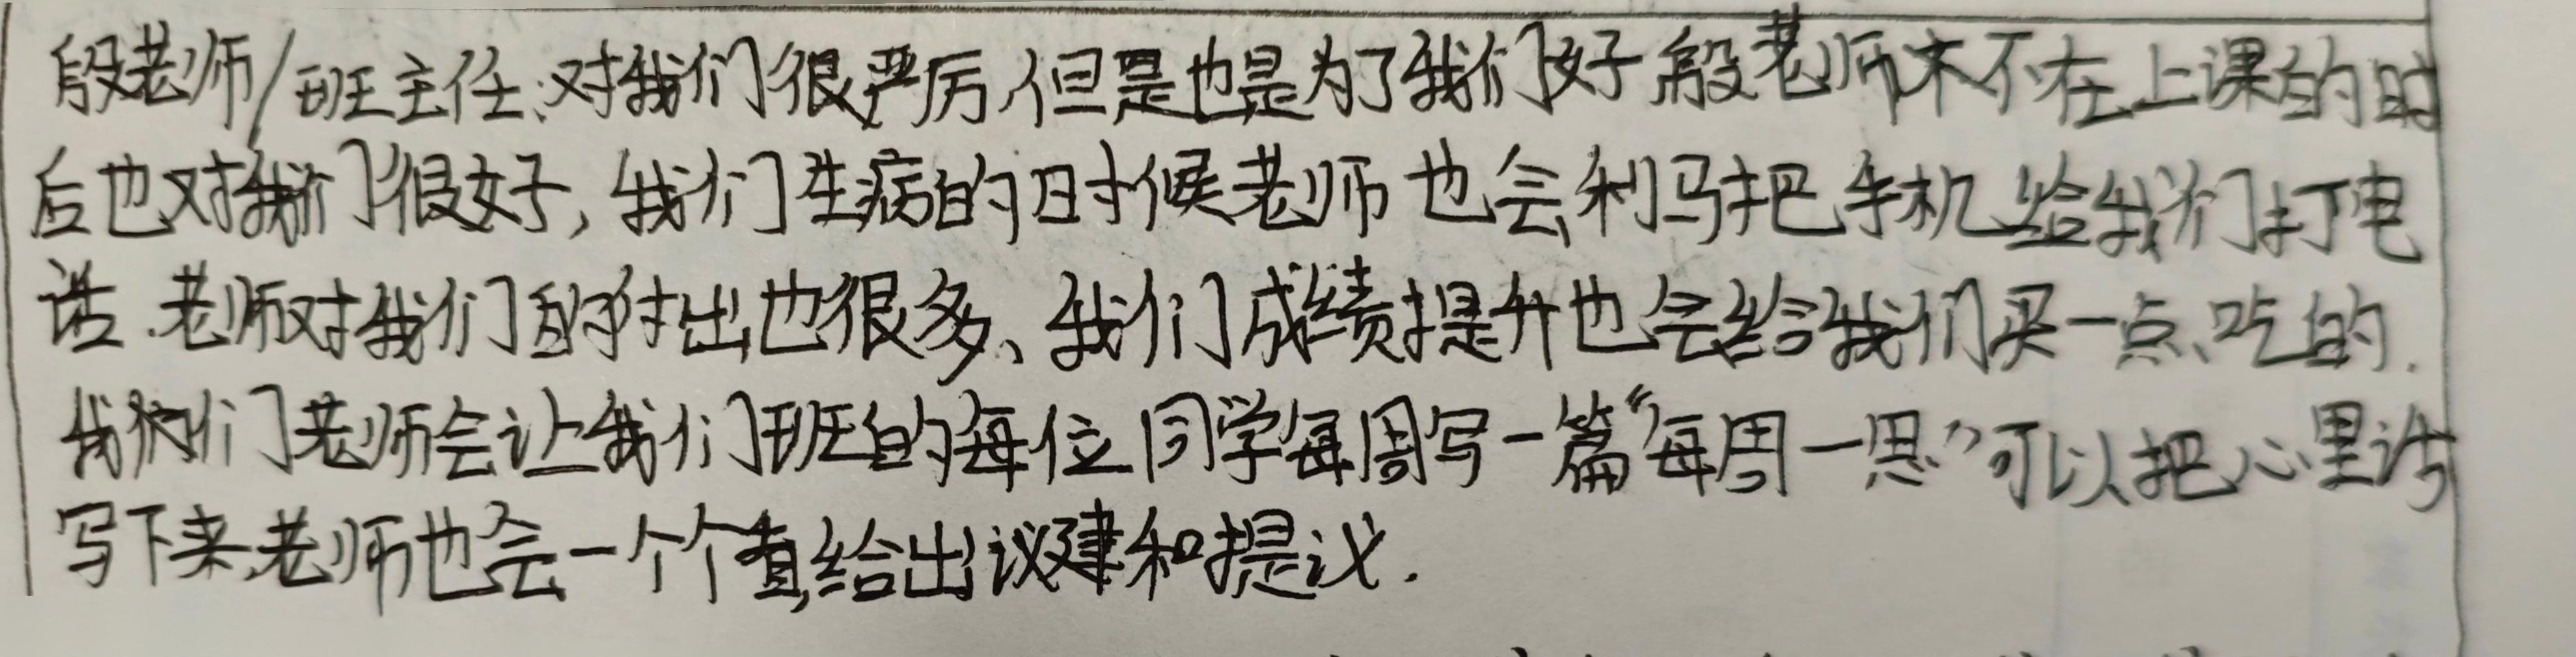 段老师/班主任:对我们很严厉,但是也是为了我们好 段老师木不在上课的时
后也对我们很好,我们生病的时候老师也会利马把手机给我们打电
话.老师对我们的付出也很多、我们成绩提升也会给我们买一点吃的.
我们们老师会让我们班的每位同学每周写一篇“每周一思”可以把心里话
写下来,老师也会一个个看,给出议建和提议.